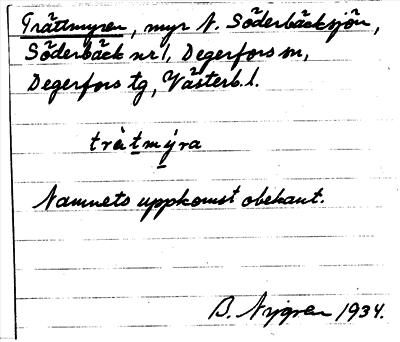 Trättmyren, myr N. Söderbäcksjön,
Söderbäck nr 1, Degerfors sn,
Degerfors tg, Västerb.l.
trȧtmýra
Namnets uppkomst obekant.
B. Nygren 1934.